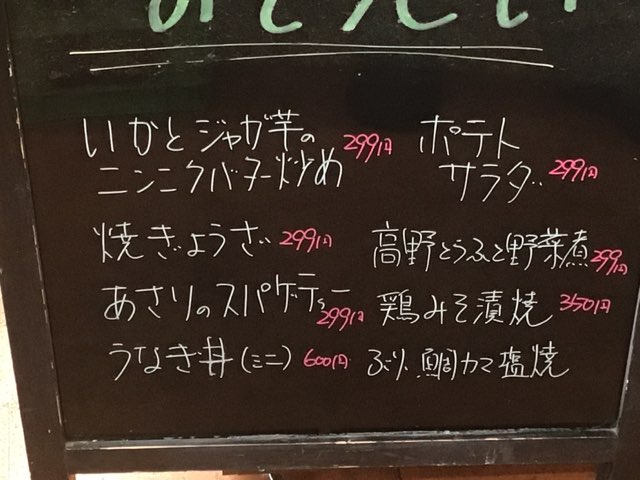 いかとジャガ芋の
ニンニクバター炒め 299円
ポテト
サラダ 299円
焼ぎょうざ 299円
高野とうふと野菜煮 299円
あさりのスパゲティー 299円
鶏みそ漬焼 350円
うなき丼(ミニ) 600円
ぶり、鯛カマ塩焼